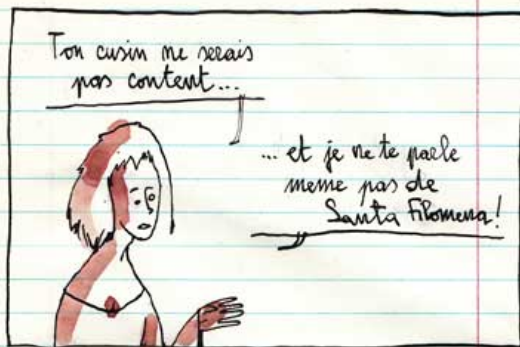 Ton cusin ne serais
pas content...
... et je ne te parle
meme pas de
Santa Filomena!